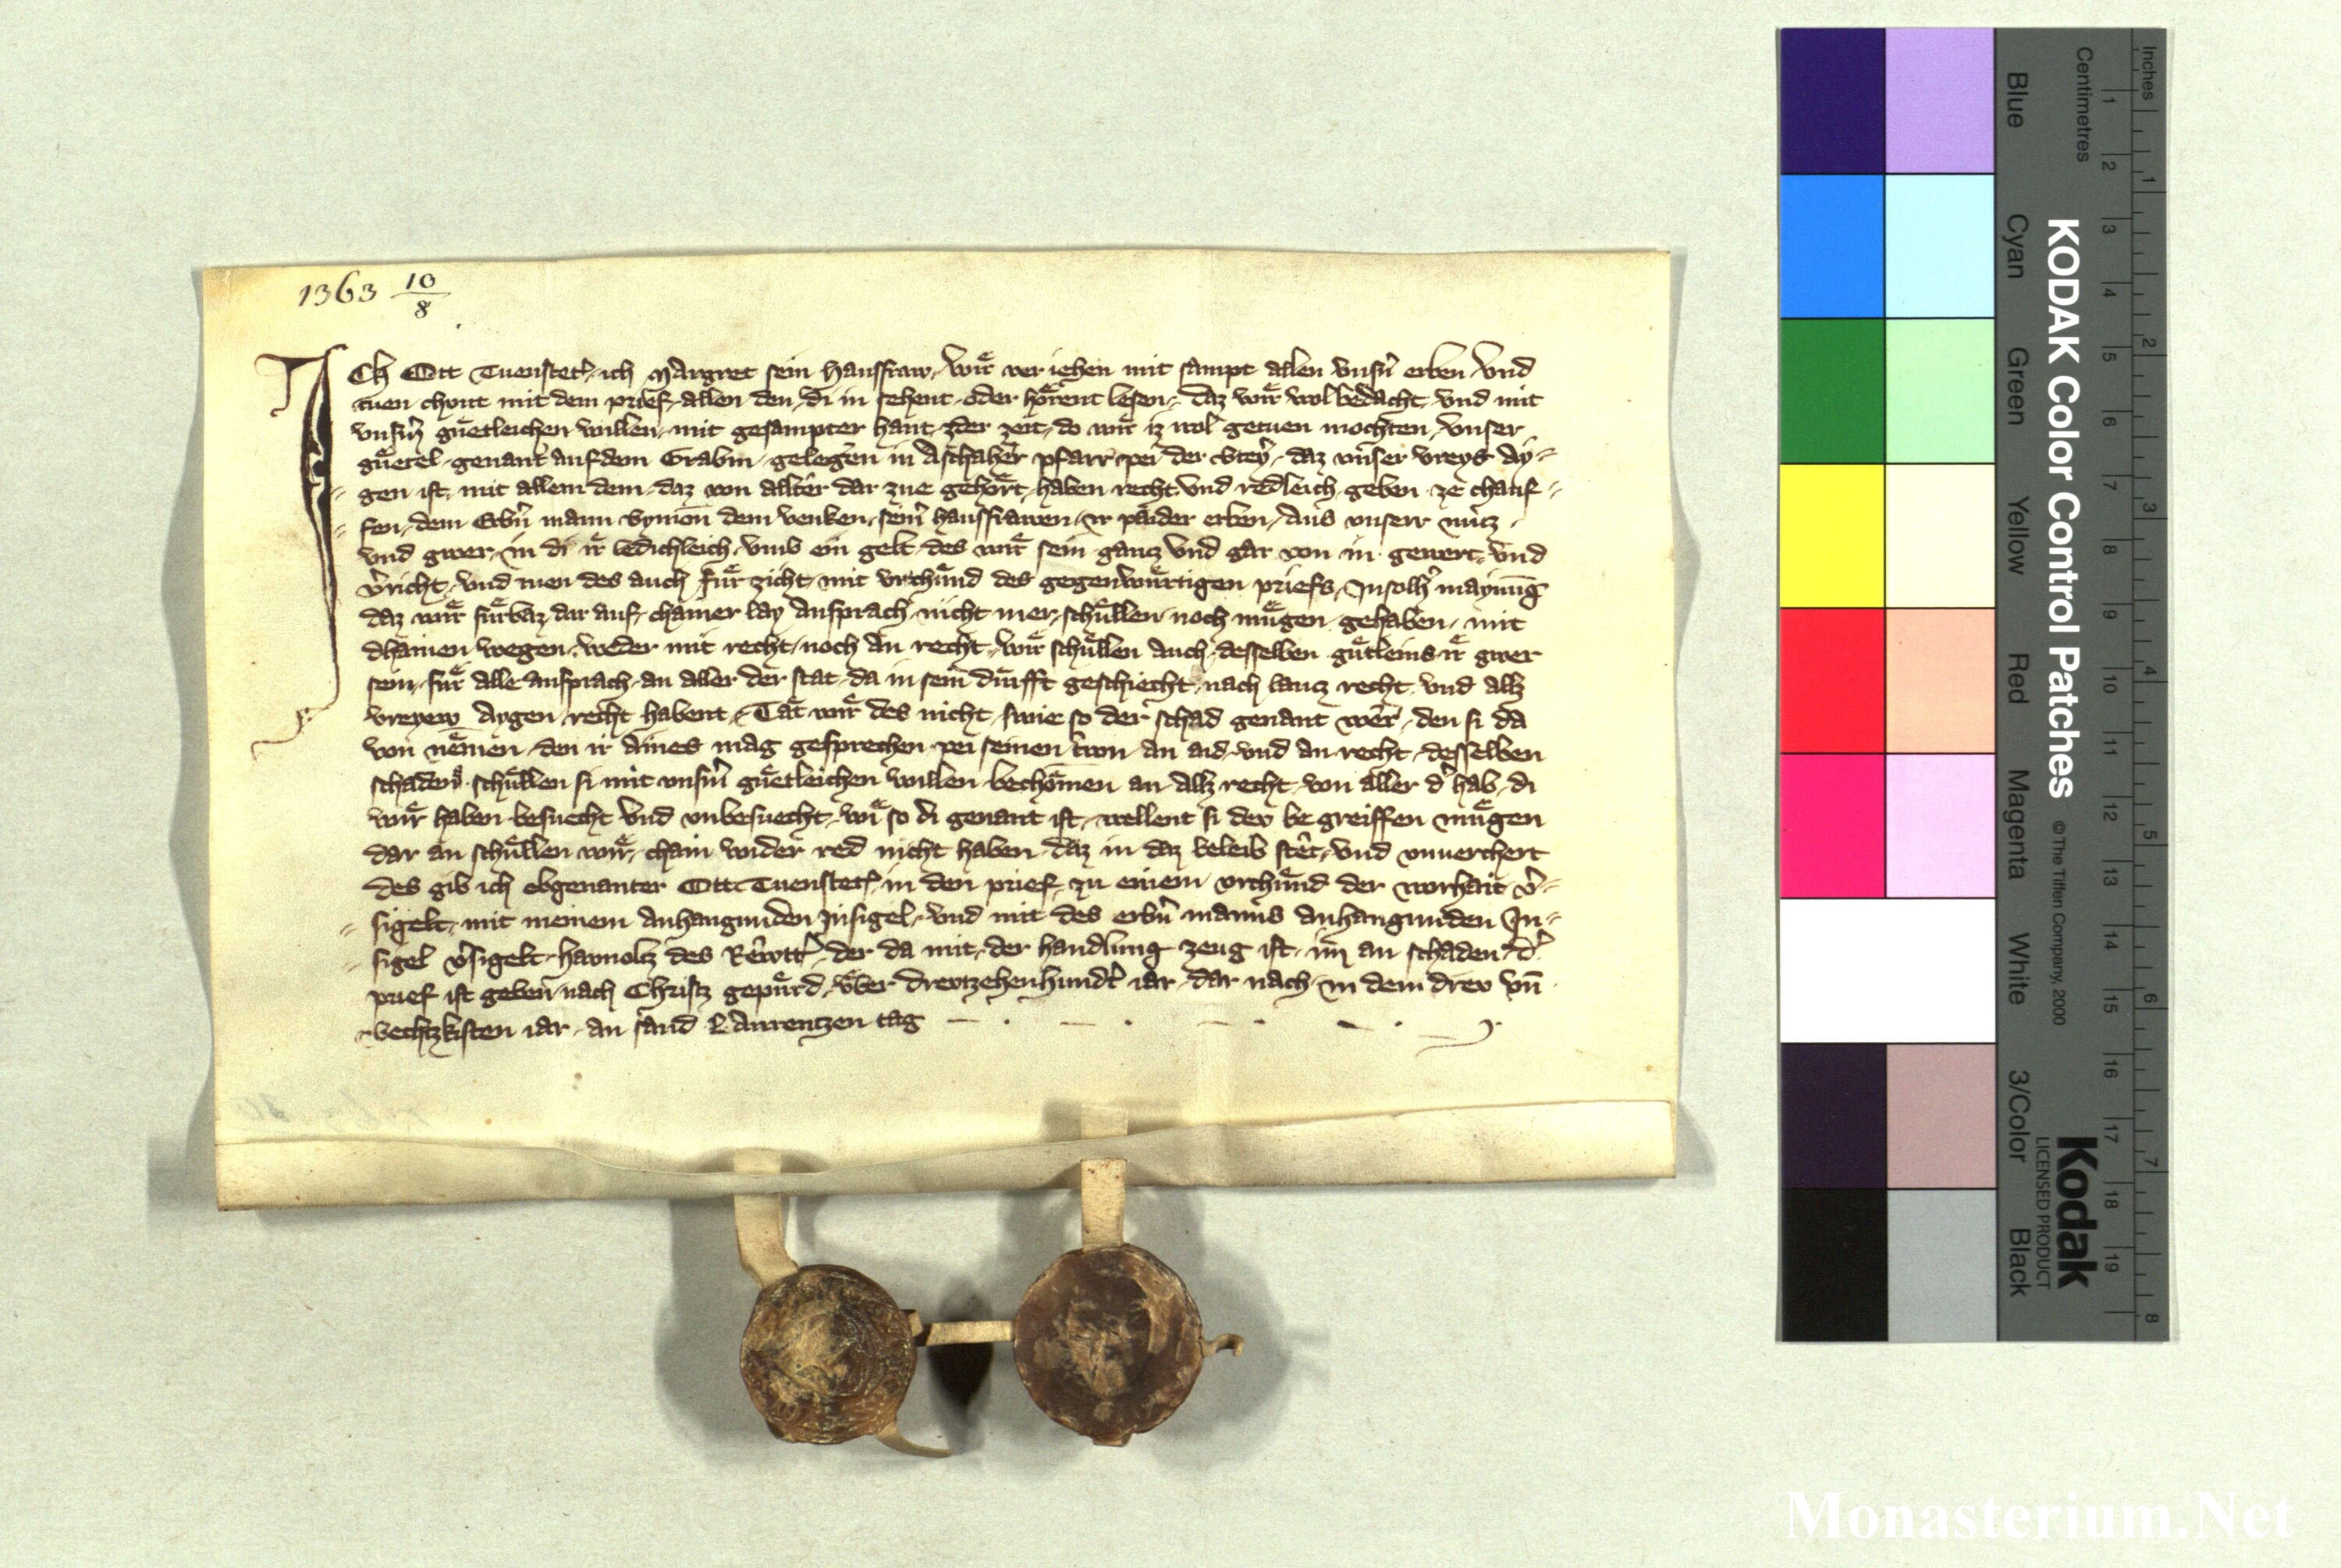 1363 10/8
ICh Ott Tuenstet᷑ ich Margret sein hausfraw, wir̈ ver iehen mit sampt allen vnsn̄ erben vnd
tuen chunt mit dem prief, allen den, di in sehent oder hoͤrent lesen, daz wir̈ wolbedacht, vnd mit
vnsm̄ guͤtleichen willen, mit gesampter hant zder zeit, do wir̈ iz wol getuen mochten, vnser
guͤetel, genant auf dem Grabm, gelegen in Aschaher pfarr pei der Steyr̄, daz vnser vreys Ay⸗
gen ist, mit allem dem, daz von alltër dar zue gehoͤrt, haben recht vnd redleich geben ze chauf⸗
fen, dem Erbn̄ mann Symon dem venken, sein̄ hausfrawen, ir paider erben, Aus vnserr nuͤtz
vnd gwer, in di ir̈ ledichleich, vmb ein gelt, des wir̈ sein gancz vnd gar von in gewert, vnd
v̄richt, vnd iuen des auch fuͤr zicht, mit vrchuͤnd des gegenwuͤrtigen priefs, Insolh̄ maynūg
daz wir̈ fuͤrbaz, dar auf, chainer lay Ansprach, nicht mer, schuͤllen noch muͤgen gehaben, mit
dhainen wegen, weder mit recht, noch an recht, wir̈ schuͤllen auch, desselben guͤtleins ir̈ gwer
sein, fuͤr alle ansprach, an aller der stat, da in sein duͤrfft geschiecht, nach lancz recht, vnd allz
vreyew Aygen recht habent, Taͤt wir̈ des nicht, swie so der schad genant wer̈, den si da
von nëmen, den ir aines mag gesprechen pei seinen trwn an aid, vnd an recht, desselben
schadens schuͤllen si mit vnsm̄ guͤetleichen willen bechoͤmen an allz recht, von aller d̄ hab, di
wir̈ haben besuecht vnd vnbesuecht, wï so di genant ist, wellent si dew be greiffen muͤgen
dar an schuͤllen wir̈, chain wider red nicht haben, daz in daz beleib stët, vnd vnuerchert
des gib ich obgenanter Ott Tuenstet᷑ in den prief, zu einem vrchuͤnd der warhait v̄⸗
sigelt, mit meinem anhangunden Insigel, vnd mit des erbn̄ manns anhangunden In⸗
sigel v̄sigelt, hawnoltz des Rëwtt᷑, der da mit, der handlung zeug ist, im an schaden, d̄
prief ist geben nach Christz gepuͤrd, vber drewtzehenhundt̄ iar, dar nach, in dem drew vn̄
Sechtzkisten iar, an sand Laurentzen tag
KODAK Color Control Patches © The Tiffen Company, 2000
Kodak
LICENSED PRODUCT
Blue Cyan Green Yellow Red Magenta White 3/Color Black
Centimetres 1 2 3 4 5 6 7 8 9 10 11 12 13 14 15 16 17 18 19
Inches 1 2 3 4 5 6 7 8
Monasterium.Net